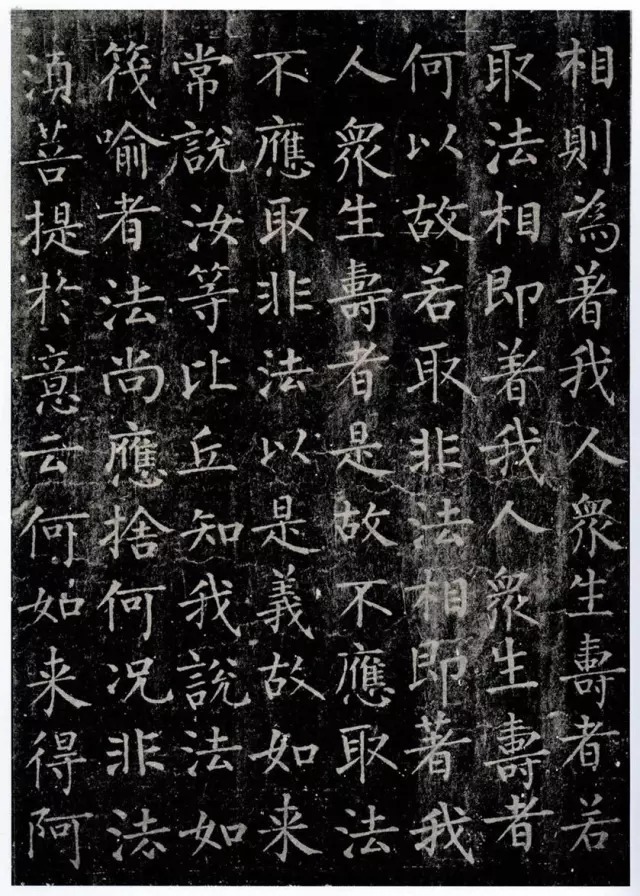 相則為著我人衆生壽者若
取法相即著我人衆生壽者
何以故若取非法相即著我
人衆生壽者是故不應取法
不應取非法以是義故如来
常説汝等比丘知我説法如
筏喻者法尚應捨何況非法
湏菩提於意云何如来得阿